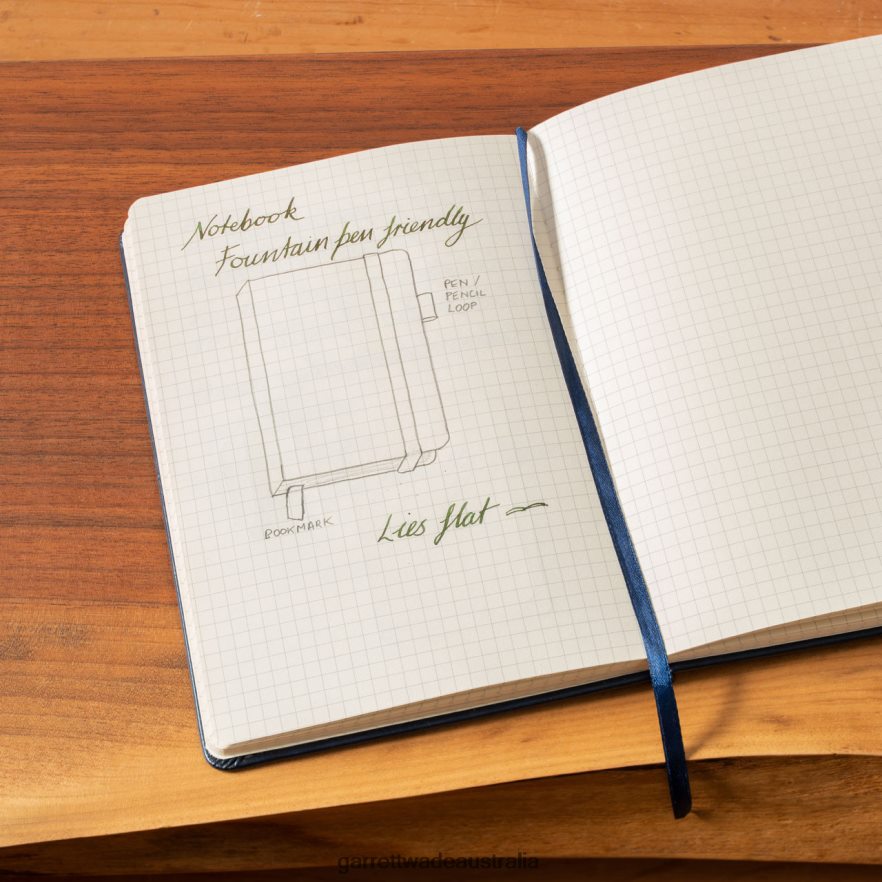 Notebook
Fountain pen friendly
PEN /
PENCIL
LOOP
BOOKMARK
Lies flat
garrettwadeaustralia